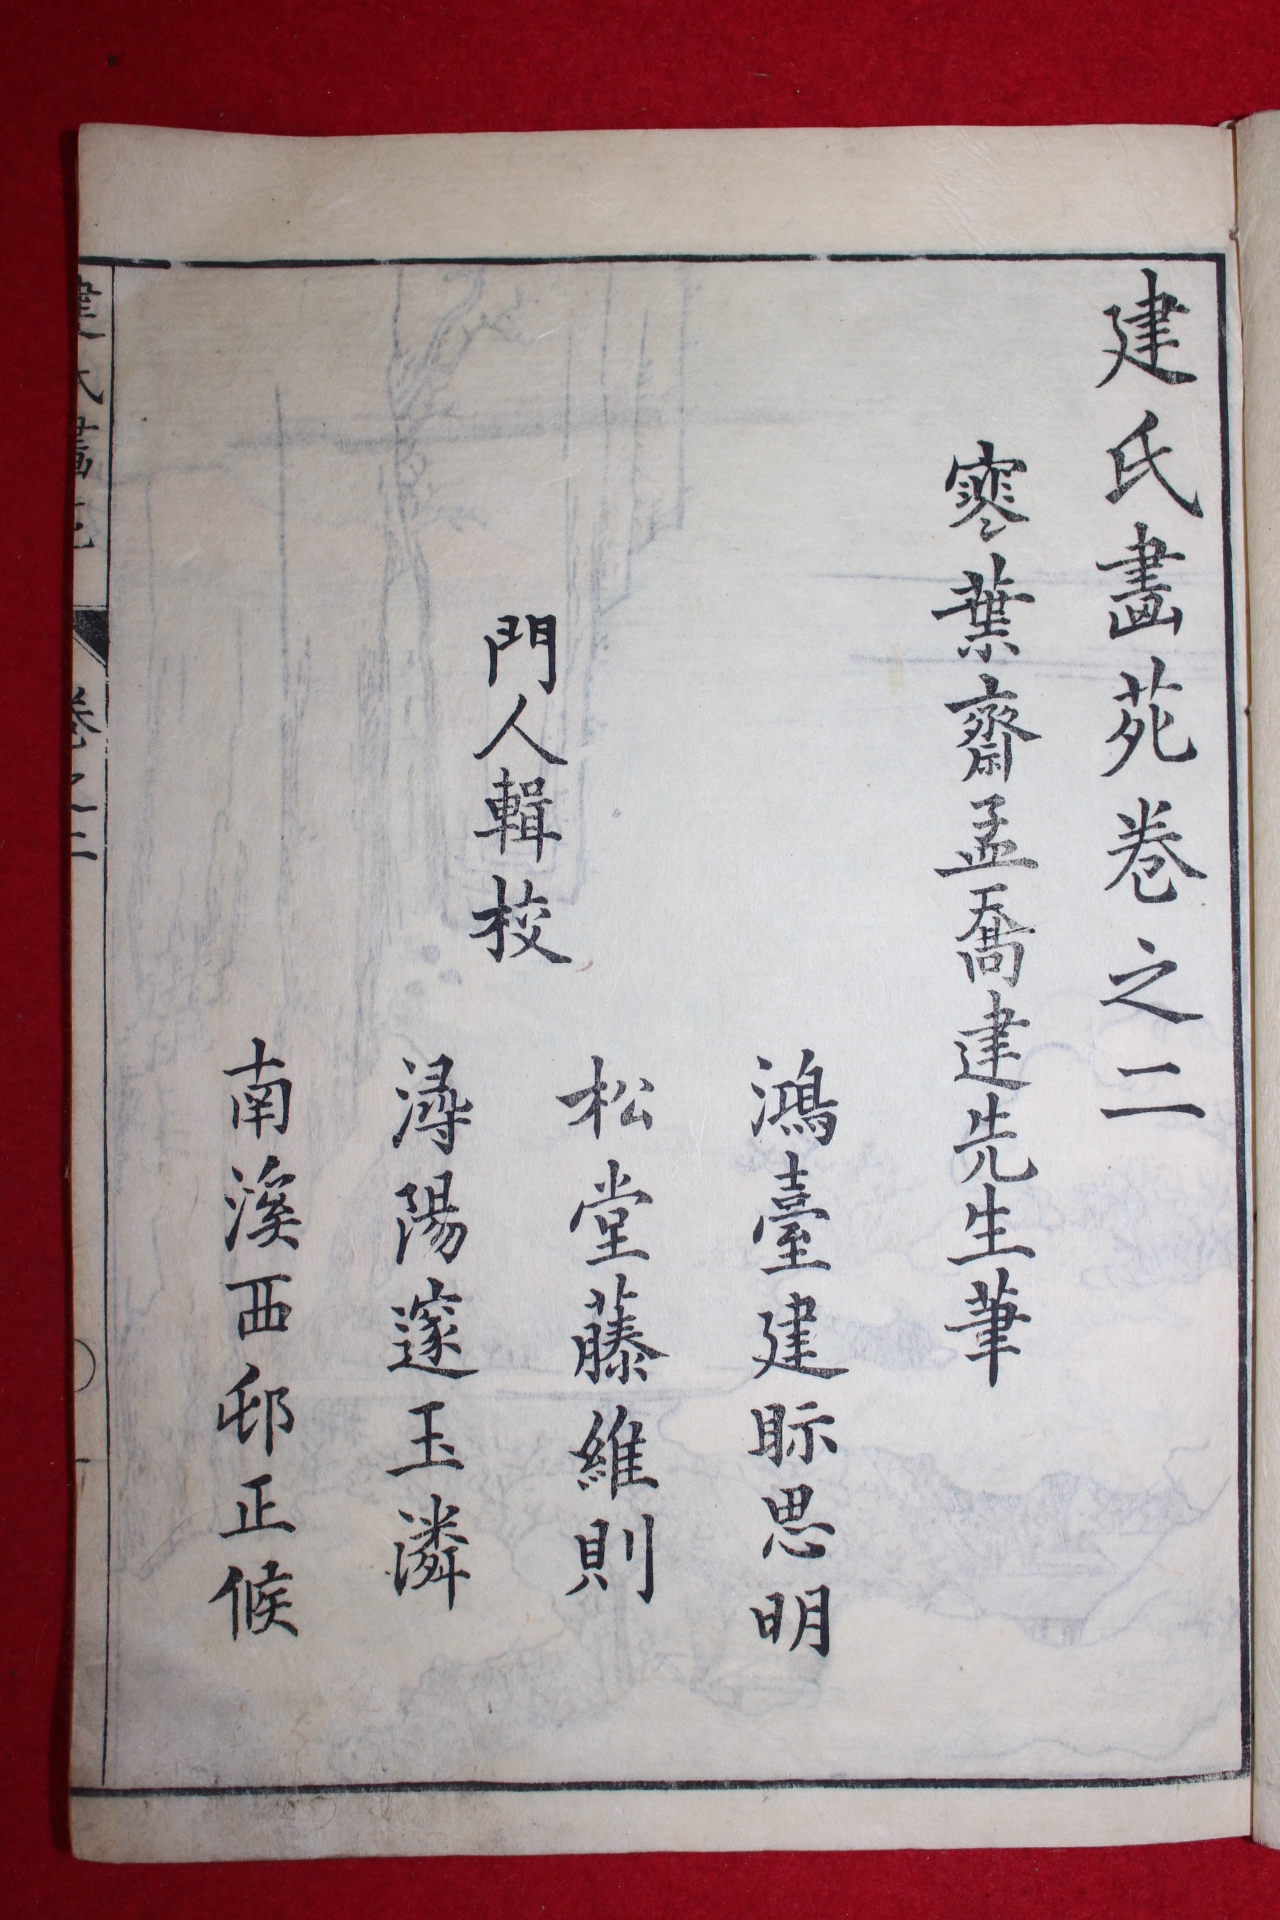 建氏畫苑卷之二
寒葉齋孟喬建先生筆
鴻臺建眎思明
松堂藤維則
門人輯校
潯陽邃玉潾
南溪西邨正候
建氏畫苑 卷之二